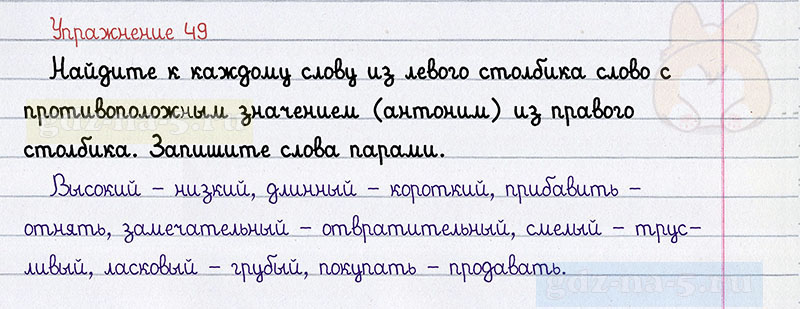 Упражнение 49
Найдите к каждому слову из левого столбика слово с
противоположным значением (антоним) из правого
столбика. Запишите слова парами.
Высокий – низкий, длинный – короткий, прибавить –
отнять, замечательный – отвратительный, смелый – трус-
ливый, ласковый – грубый, покупать – продавать.
gdz-na-5.ru
gdz-na-5.ru